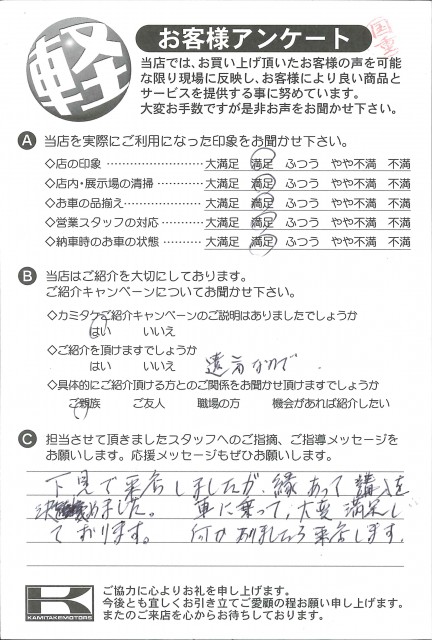 軽
お客様アンケート
当店では、お買い上げ頂いたお客様の声を可能
な限り現場に反映し、お客様により良い商品と
サービスを提供する事に努めています。
大変お手数ですが是非お声をお聞かせ下さい。
A 当店を実際にご利用になった印象をお聞かせ下さい。
◇店の印象 ‥‥‥‥‥‥‥‥ 大満足 満足 ふつう やや不満 不満
◇店内・展示場の清掃‥‥‥‥ 大満足 満足 ふつう やや不満 不満
◇お車の品揃え‥‥‥‥‥‥‥ 大満足 満足 ふつう やや不満 不満
◇営業スタッフの対応‥‥‥‥ 大満足 満足 ふつう やや不満 不満
◇納車時のお車の状態‥‥‥‥ 大満足 満足 ふつう やや不満 不満
B 当店はご紹介を大切にしております。
ご紹介キャンペーンについてお聞かせ下さい。
◇カミタケご紹介キャンペーンのご説明はありましたでしょうか
はい いいえ
◇ご紹介を頂けますでしょうか
はい いいえ 遠方なので
◇具体的にご紹介頂ける方とのご関係をお聞かせ頂けますでしょうか
ご親族 ご友人 職場の方 機会があれば紹介したい
C 担当させて頂きましたスタッフへのご指摘、ご指導メッセージを
お願いします。応援メッセージもぜひお願いします。
下見で来店しましたが、縁あって購入を
決めました。車に乗って、大変満足し
ております。何かありましたら来店します。
K
KAMITAKEMOTORS
ご協力に心よりお礼を申し上げます。
今後とも宜しくお引き立てご愛顧の程お願い申し上げます。
またのご来店を心からお待ちしております。